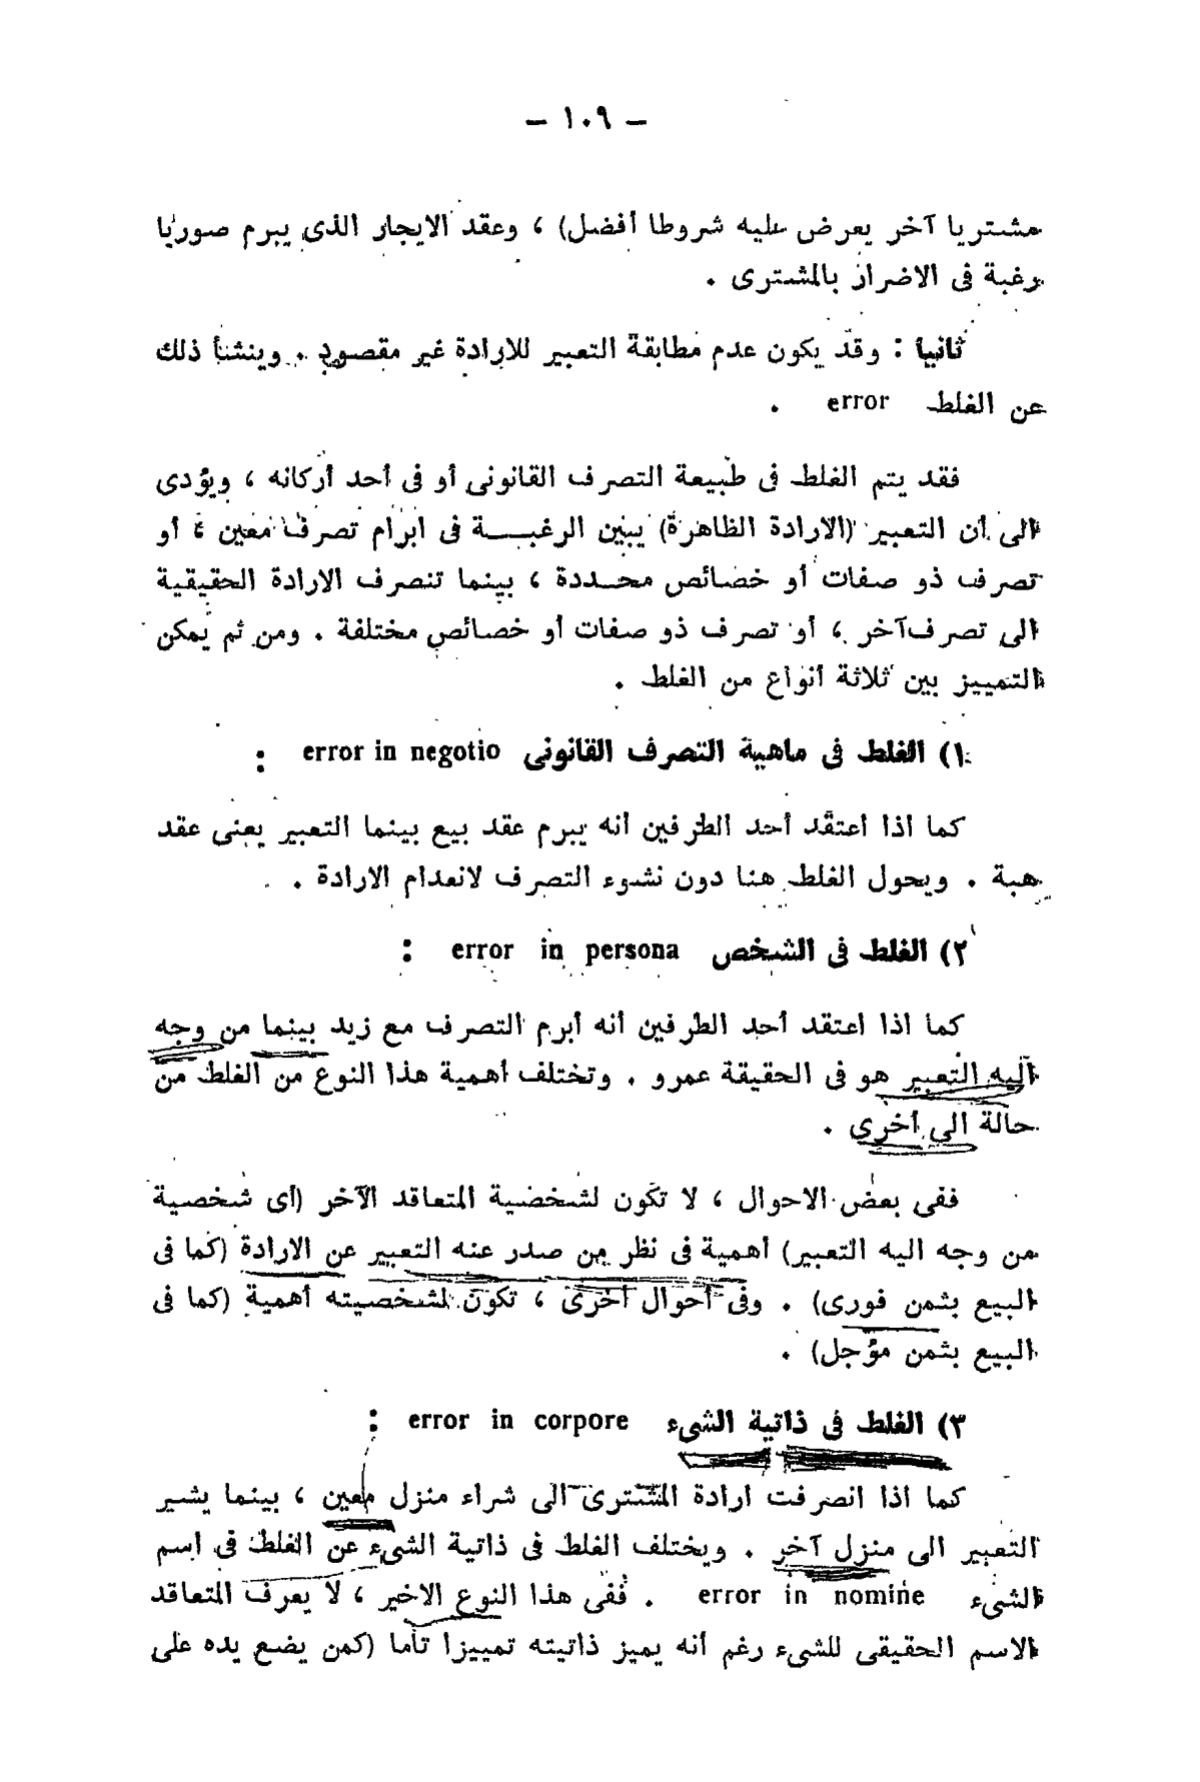 — ١٠٩ —
مشتريا آخر يعرض عليه شروطا أفضل) ، وعقد الايجار الذى يبرم صوريا
رغبة فى الاضرار بالمشترى .
ثانيا : وقد يكون عدم مطابقة التعبير للارادة غير مقصود . وينشأ ذلك
عن الغلط error .
فقد يتم الغلط فى طبيعة التصرف القانونى أو فى أحد أركانه ، ويؤدى
الى أن التعبير (الارادة الظاهرة) يبين الرغبـــة فى ابرام تصرف معين ، أو
تصرف ذو صفات أو خصائص محددة ، بينما تنصرف الارادة الحقيقية
الى تصرف آخر ، أو تصرف ذو صفات أو خصائص مختلفة . ومن ثم يمكن
التمييز بين ثلاثة أنواع من الغلط .
١) الغلط فى ماهية التصرف القانونى error in negotio :
كما اذا اعتقد أحد الطرفين أنه يبرم عقد بيع بينما التعبير يعنى عقد
هبة . ويحول الغلط هنا دون نشوء التصرف لانعدام الارادة .
٢) الغلط فى الشخص error in persona :
كما اذا اعتقد أحد الطرفين أنه أبرم التصرف مع زيد بينما من وجه
اليه التعبير هو فى الحقيقة عمرو . وتختلف أهمية هذا النوع من الغلط من
حالة الى أخرى .
ففى بعض الاحوال ، لا تكون لشخصية المتعاقد الآخر (أى شخصية
من وجه اليه التعبير) أهمية فى نظر من صدر عنه التعبير عن الارادة (كما فى
البيع بثمن فورى) . وفى أحوال أخرى ، تكون لشخصيته أهمية (كما فى
البيع بثمن مؤجل) .
٣) الغلط فى ذاتية الشىء error in corpore :
كما اذا انصرفت ارادة المشترى الى شراء منزل معين ، بينما يشير
التعبير الى منزل آخر . ويختلف الغلط فى ذاتية الشىء عن الغلط فى اسم
الشىء error in nomine . ففى هذا النوع الاخير ، لا يعرف المتعاقد
الاسم الحقيقى للشىء رغم أنه يميز ذاتيته تمييزا تاما (كمن يضع يده على